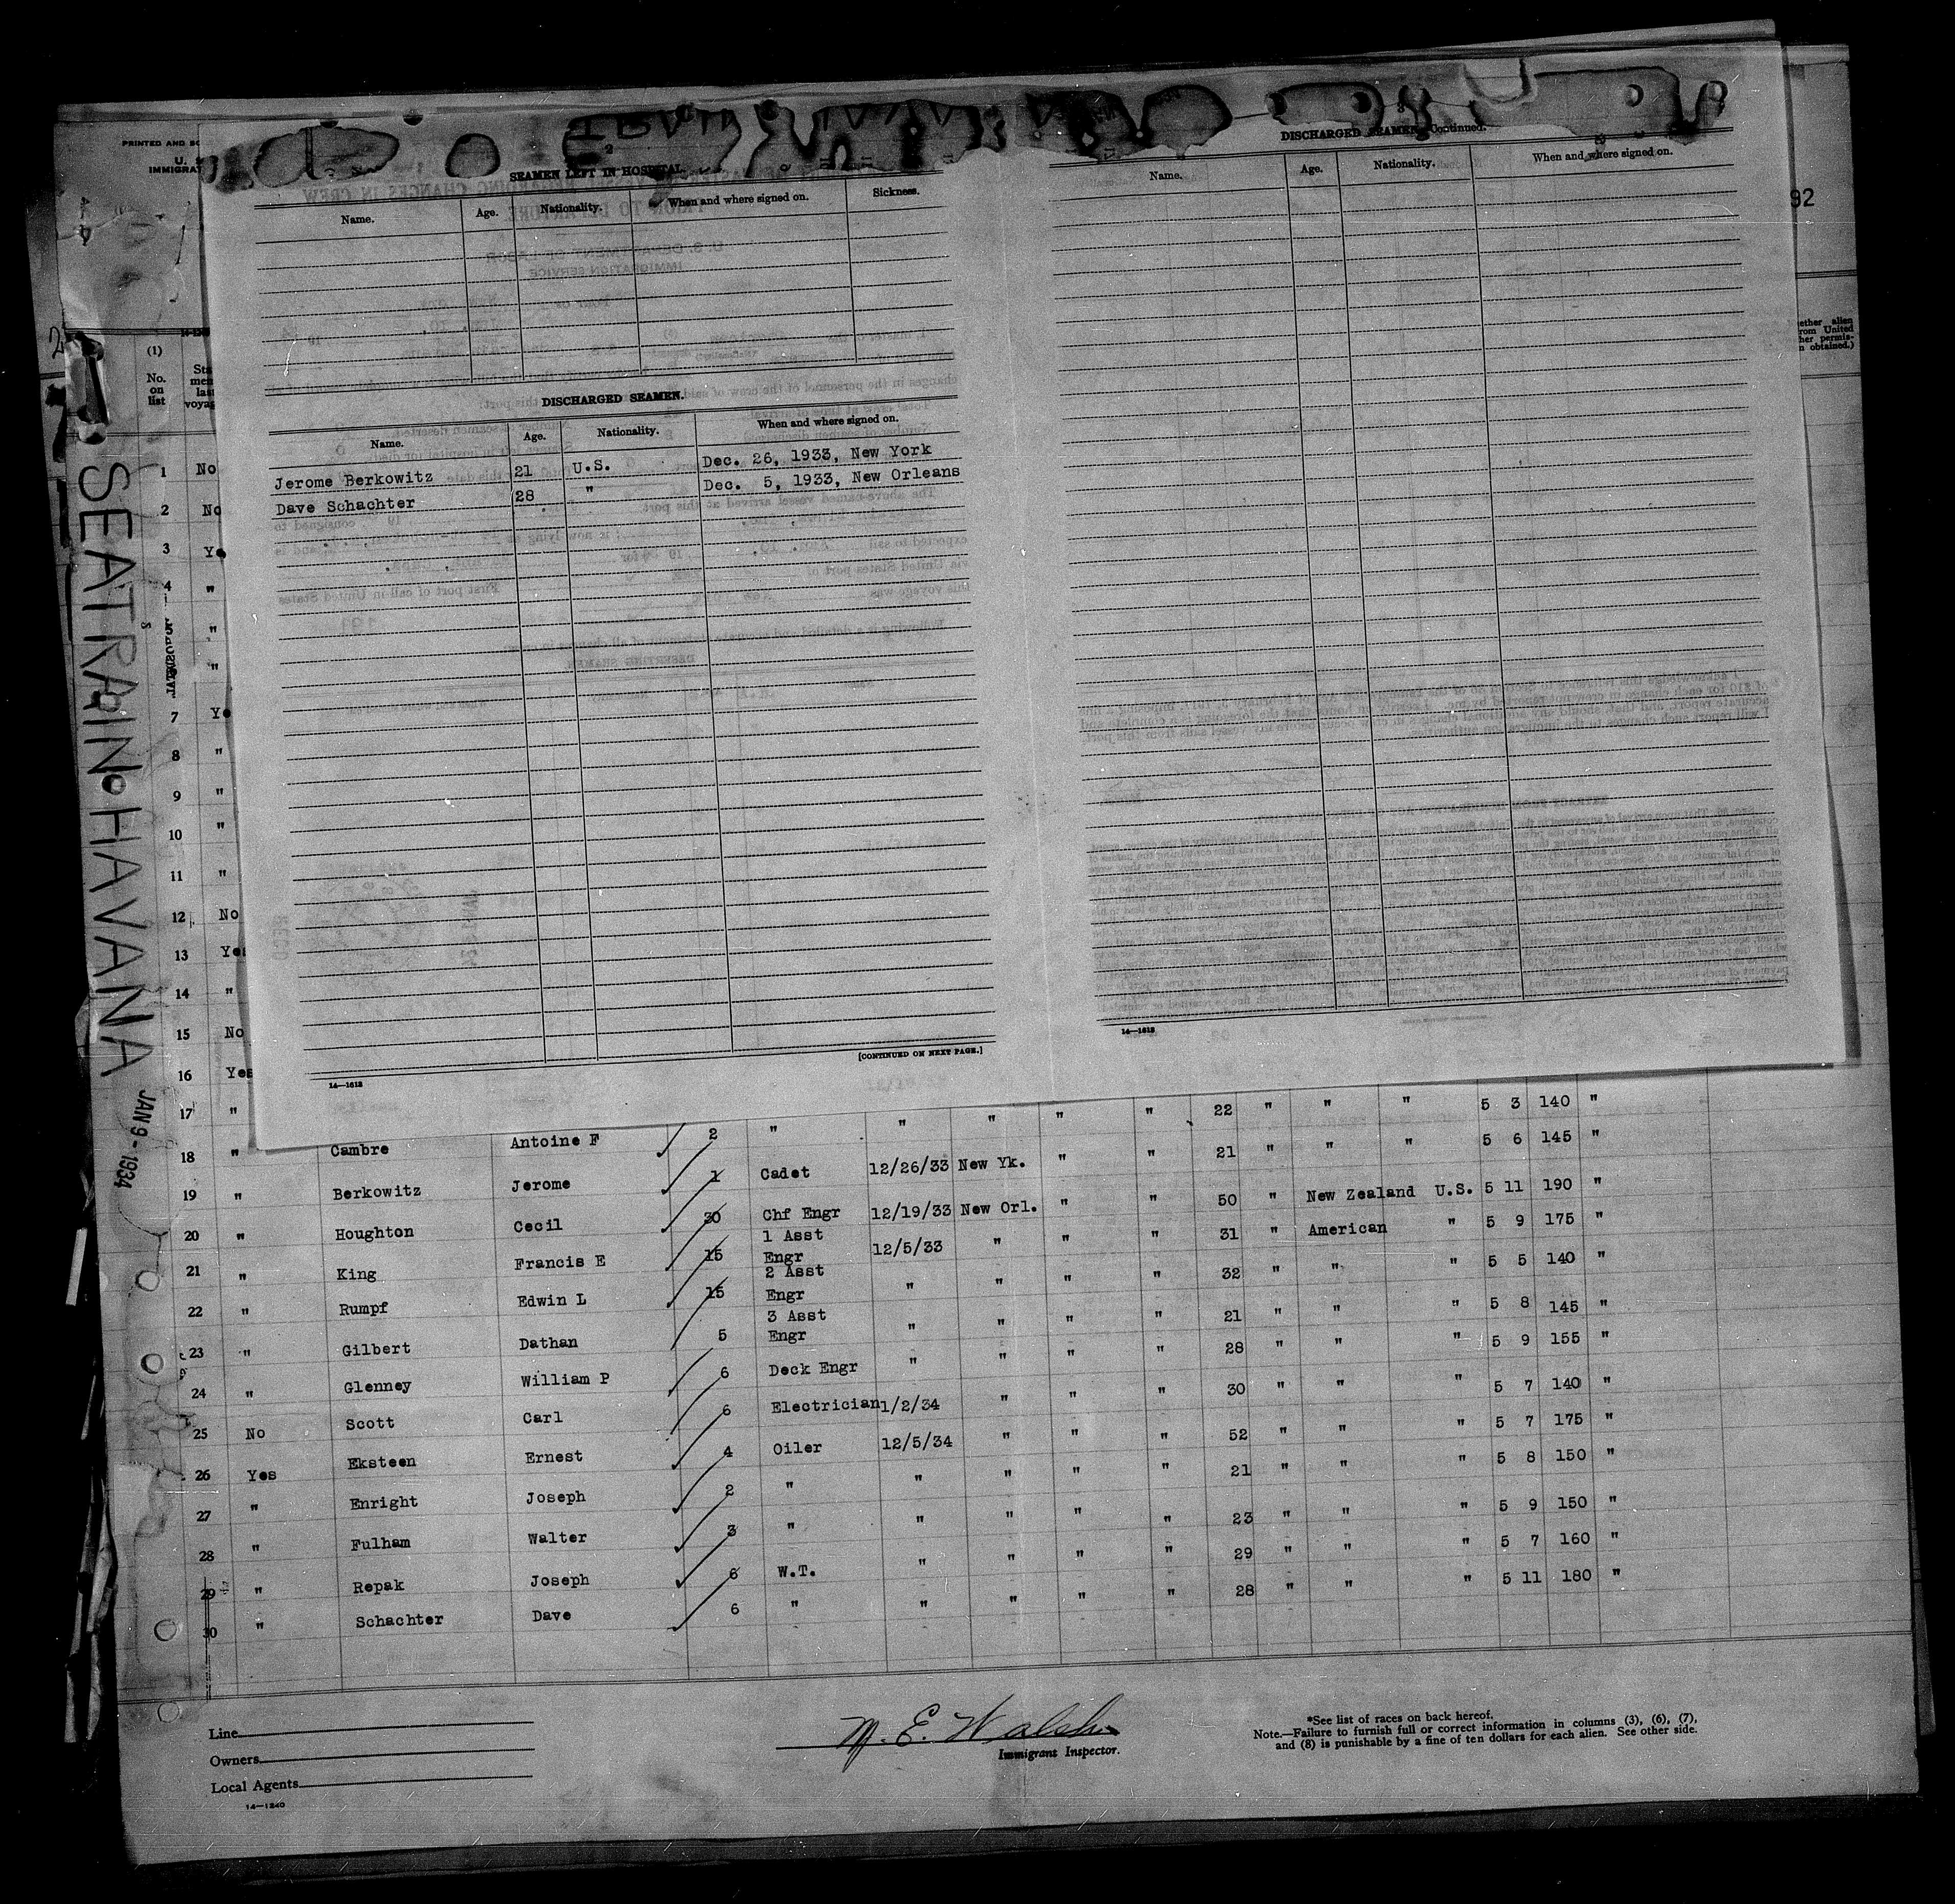 PRINTED AND
U. S.
IMMIGRAT
92
SEAMEN LEFT IN HOSPITAL.
Name. Age. Nationality. When and where signed on. Sickness.
DISCHARGED SEAMEN.
Name. Age. Nationality. When and where signed on.
Jerome Berkowitz 21 U.S. Dec. 26, 1933, New York
Dave Schachter 28 " Dec. 5, 1933, New Orleans
[CONTINUED ON NEXT PAGE.]
14—1618
DISCHARGED SEAMEN—Continued.
Name. Age. Nationality. When and where signed on.
14—1618
ether alien
rom United
her permis-
n obtained.)
(1)
No.
on
list
SEATRAIN HAVANA
JAN 9 - 1934
1 No
2 No
3 Ye
4 "
"
"
7 Ye
8 "
9 "
10 "
11 "
12 No
13 Yes
14 "
15 No
16 Yes
17 " " " " " " 22 " " " 5 3 140 "
18 " Cambre Antoine F 2 " " " " " 21 " " " 5 6 145 "
19 " Berkowitz Jerome 1 Cadet 12/26/33 New Yk. " " 50 " New Zealand U.S. 5 11 190 "
20 " Houghton Cecil 30 Chf Engr 12/19/33 New Orl. " " 31 " American " 5 9 175 "
21 " King Francis E 15 1 Asst Engr 12/5/33 " " " 32 " " " 5 5 140 "
22 " Rumpf Edwin L 15 2 Asst Engr " " " " 21 " " " 5 8 145 "
23 " Gilbert Dathan 5 3 Asst Engr " " " " 28 " " " 5 9 155 "
24 " Glenney William P 6 Deck Engr " " " " 30 " " " 5 7 140 "
25 No Scott Carl 6 Electrician 1/2/34 " " " 52 " " " 5 7 175 "
26 Yes Eksteen Ernest 4 Oiler 12/5/34 " " " 21 " " " 5 8 150 "
27 " Enright Joseph 2 " " " " " 23 " " " 5 9 150 "
28 " Fulham Walter 3 " " " " " 29 " " " 5 7 160 "
29 " Repak Joseph 6 W.T. " " " " 28 " " " 5 11 180 "
30 " Schachter Dave 6 " " " " "
Line
Owners
Local Agents
14—1240
M. E. Walsh
Immigrant Inspector.
*See list of races on back hereof.
Note.—Failure to furnish full or correct information in columns (3), (6), (7),
and (8) is punishable by a fine of ten dollars for each alien. See other side.